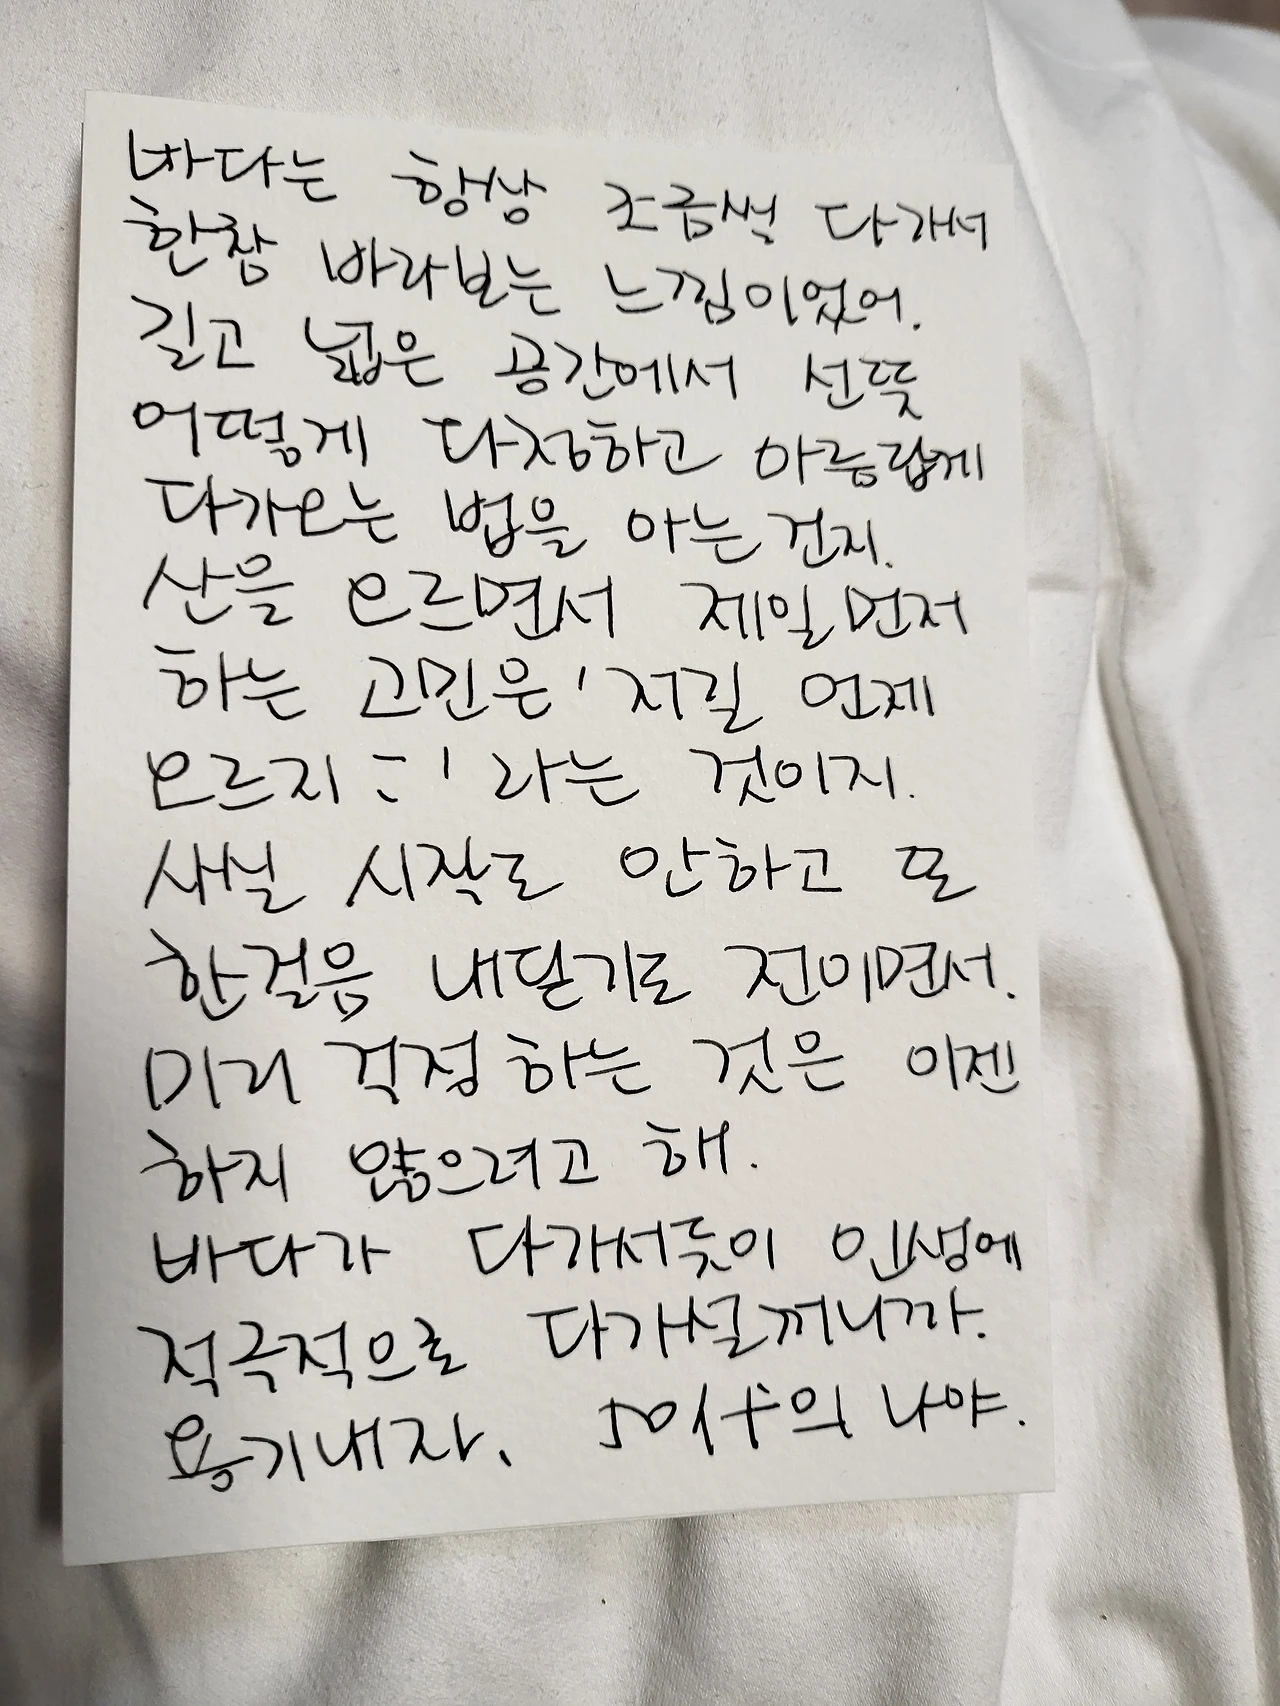 바다는 항상 조금씩 다가서
한참 바라보는 느낌이었어.
길고 넓은 공간에서 선뜻
어떻게 다정하고 아름답게
다가오는 법을 아는 건지.
산을 오르면서 제일먼저
하는 고민은 '저길 언제
오르지..' 라는 것이지.
사실 시작도 안하고 또
한걸음 내딛기도 전이면서.
미리 걱정하는 것은 이젠
하지 않으려고 해.
바다가 다가서듯이 인생에
적극적으로 다가설꺼니까.
용기내자. 의 나야.